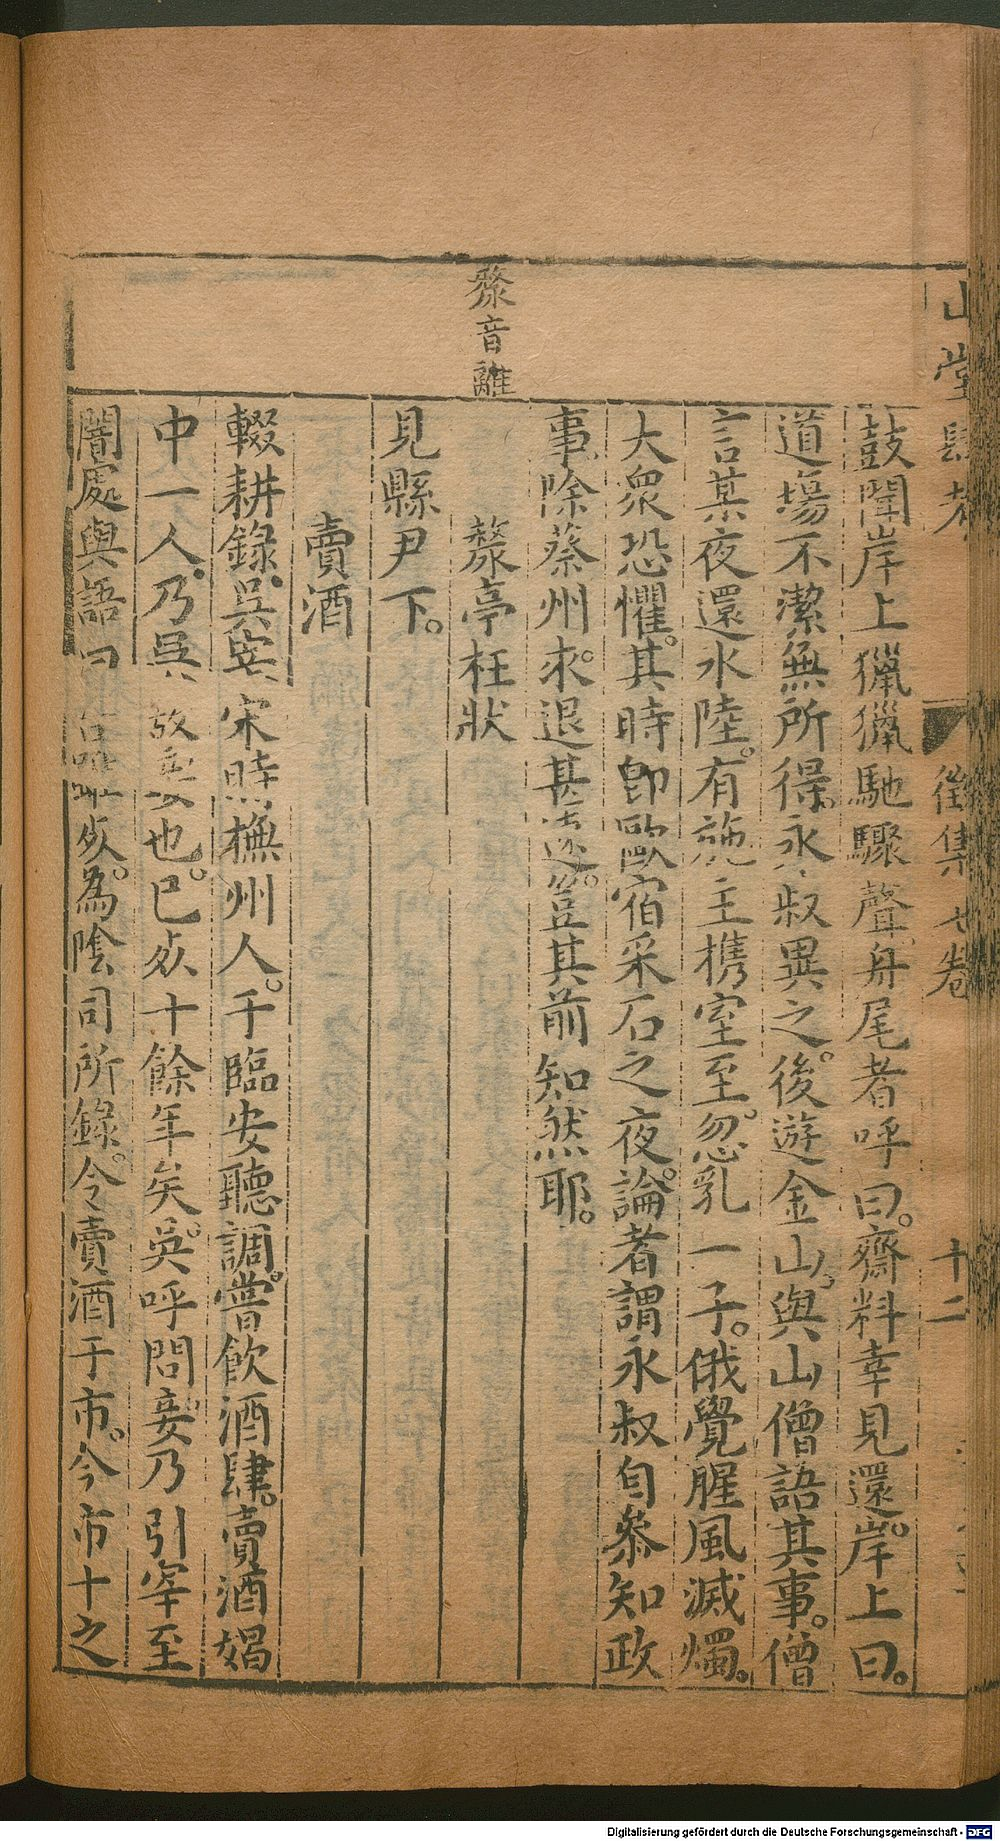 山堂肆考 徵集七卷 十二
鼓聞岸上獵獵馳驟聲舟尾者呼曰。齋料幸見還。岸上曰。
道場不潔無所得。永叔異之。後遊金山。與山僧語其事。僧
言某夜還水陸。有施主携室至。忽乳一子。俄覺腥風滅燭。
大衆恐懼。其時卽歐宿采石之夜。論者謂永叔自叅知政
事。除蔡州。求退甚遽。豈其前知然耶。
漦音離
漦亭枉狀
見縣尹下。
賣酒
輟耕錄。吳宰宋時撫州人。于臨安聽調。嘗飲酒肆。賣酒媪
中一人。乃吳故妾也。已歿十餘年矣。吳呼問妾。乃引宰至
闇處與語曰。歿。為陰司所錄。令賣酒于市。今市十之
Digitalisierung gefördert durch die Deutsche Forschungsgemeinschaft - DFG